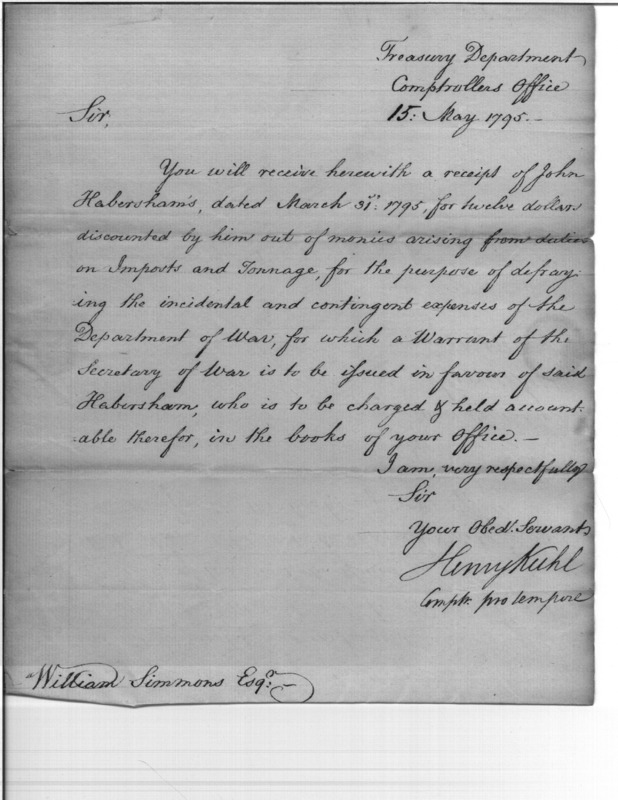 Treasury Department
Comptrollers Office
15: May 1795.—
Sir,
You will receive herewith a receipt of John
Habersham's, dated March 31st: 1795, for twelve dollars
discounted by him out of monies arising from duties
on Imposts and Tonnage, for the purpose of defray-
-ing the incidental and contingent expenses of the
Department of War, for which a Warrant of the
Secretary of War is to be issued in favour of said
Habersham, who is to be charged & held account-
-able therefor, in the books of your Office.—
I am, very respectfully
Sir
Your Obedt. Servant
Henry Kuhl
Comptr. pro tempore
William Simmons Esqr.